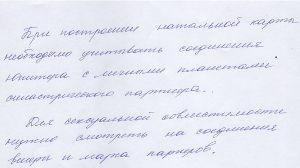 При построении натальной карты
необходимо учитывать соединения
Юпитера с личными планетами
синастрического партнера..
Для сексуальной совместимости
нужно смотреть на соединения
венеры и марса партнеров.